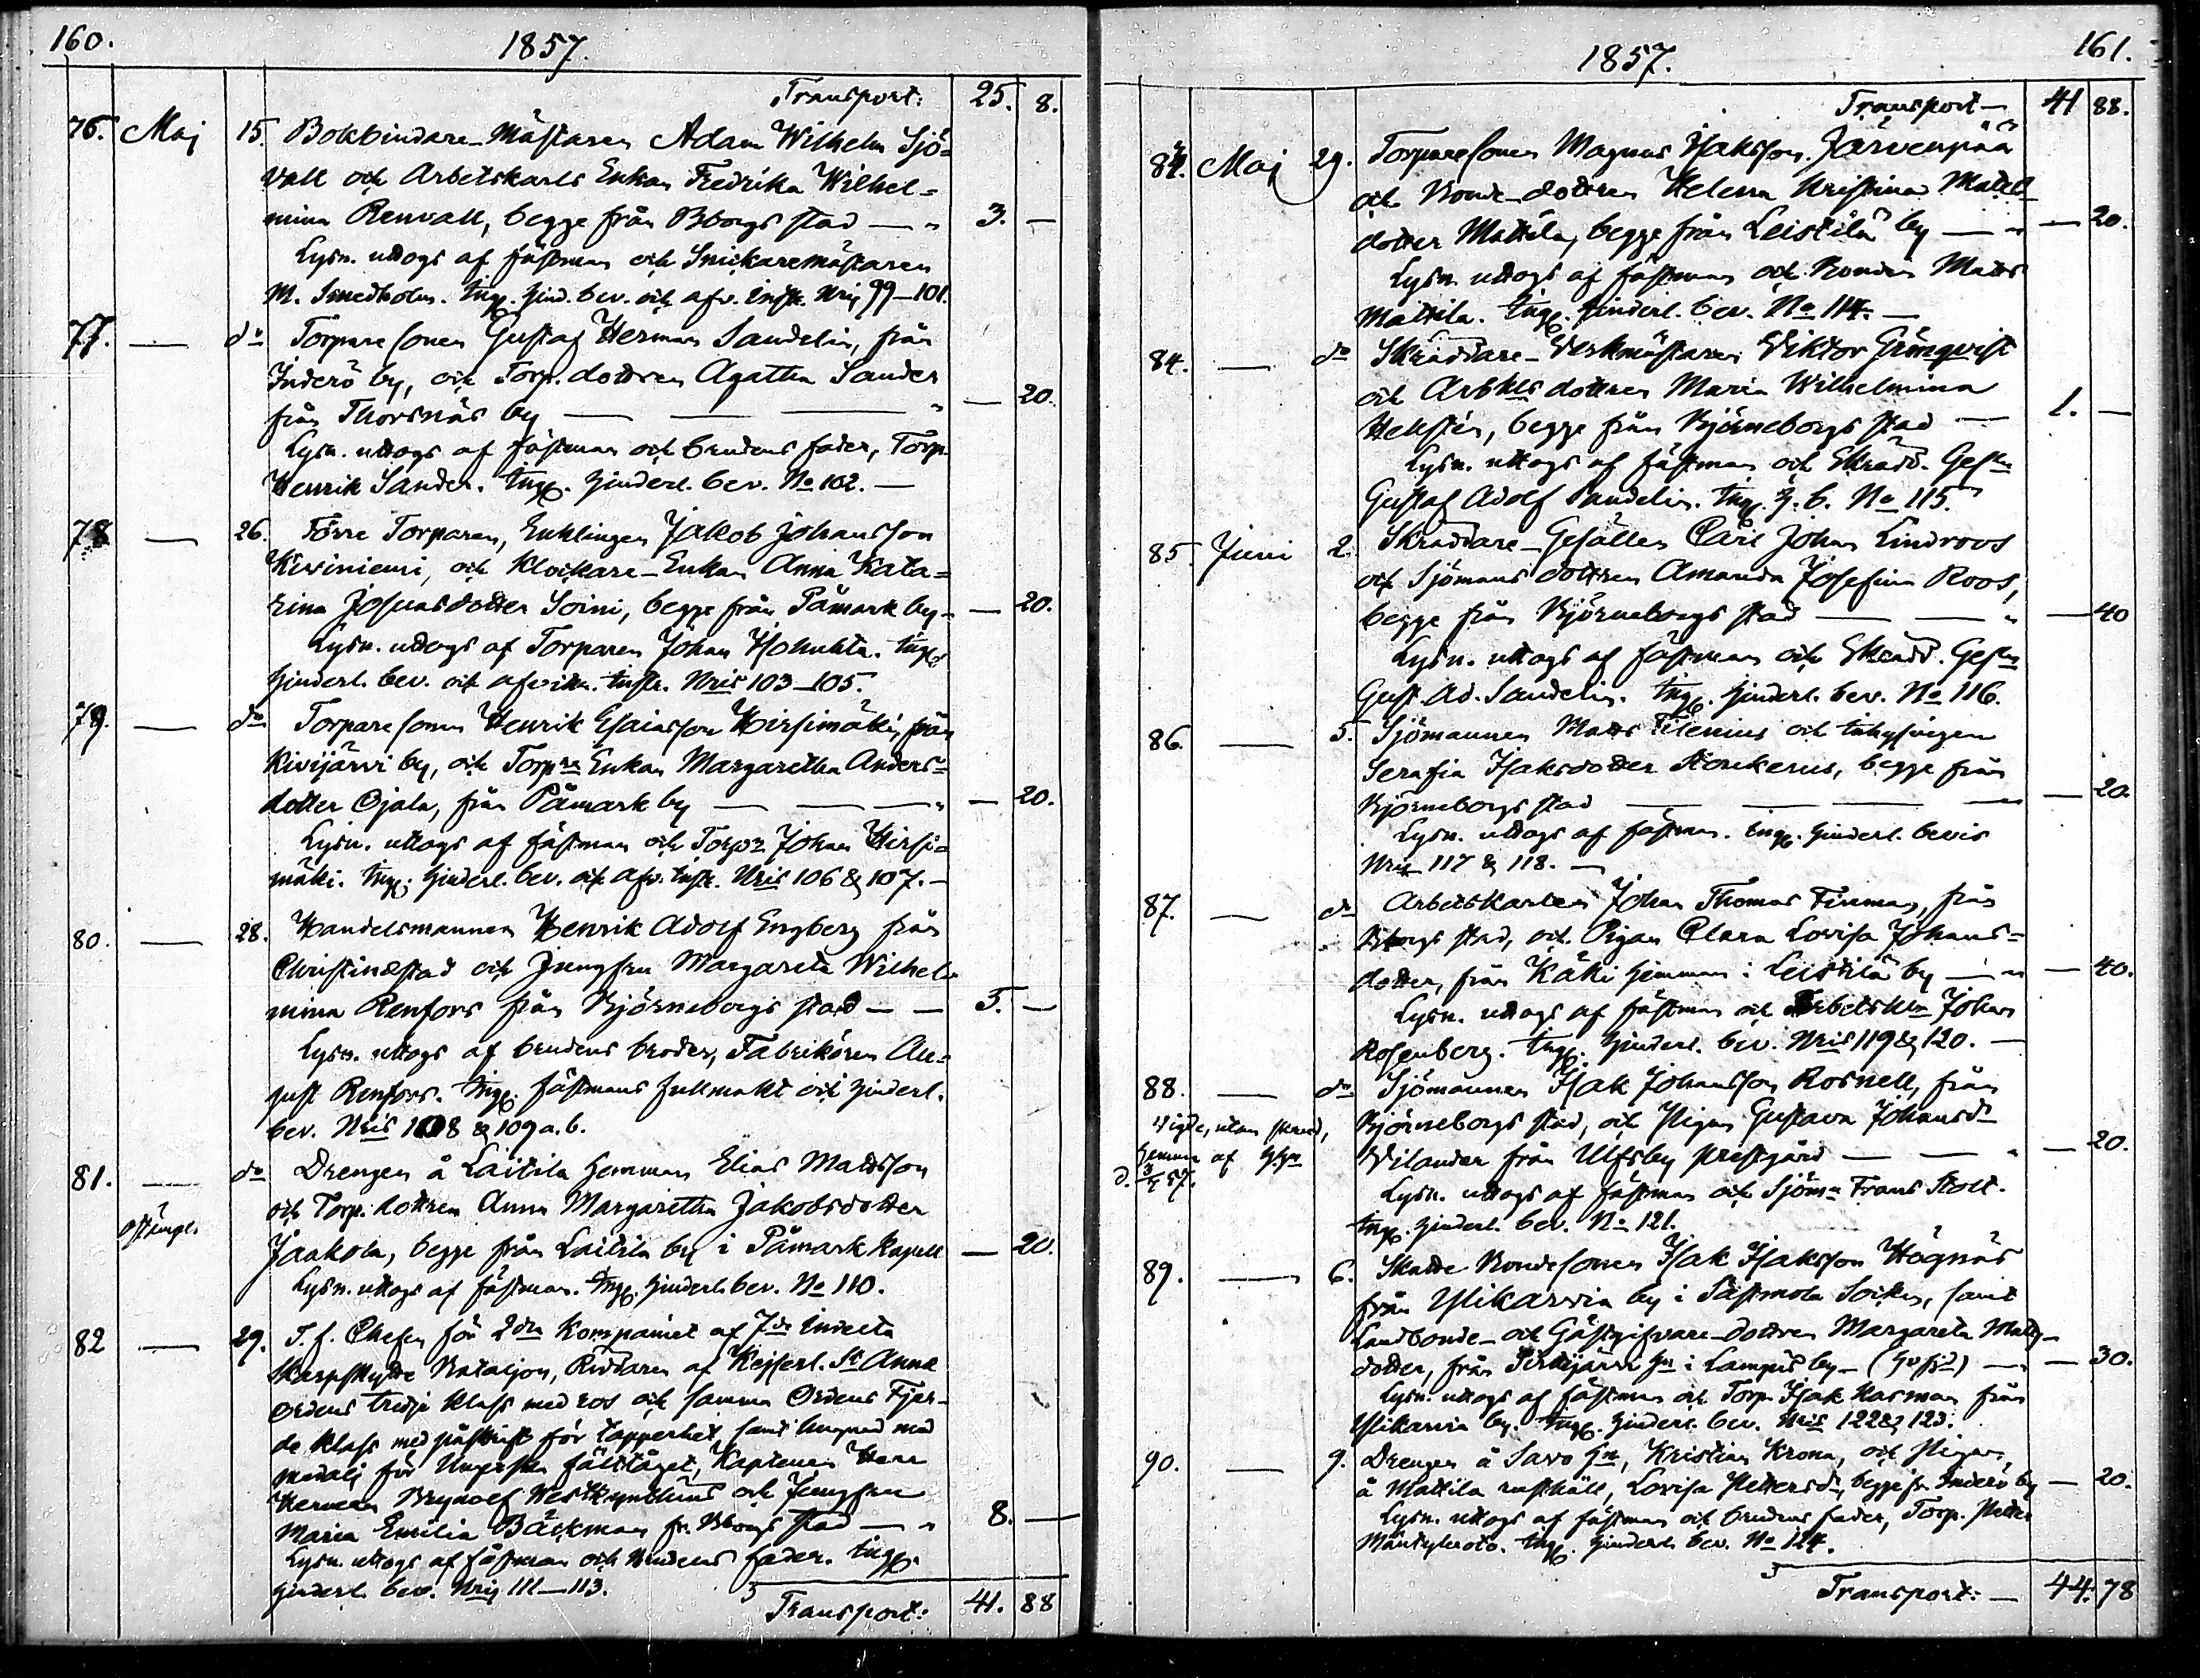 160.
1857.
Transport: 25. 8.
76. Maj 15. Bokbindare-Mästaren Adam Wilhelm Sjö=
vall och Arbetskarls Enkan Fredrika Wilhel=
mina Renvall, begge från Bborgs stad — " 3. —
Lysn. uttogs af fästman och Snickaremästaren
M. Smedholm. Ingg. hind. bev. och afv. instr. Nris 99—101.
77. — do Torpare sonen Gustaf Herman Sandelin, från
Inderö by, och Torp. dottren Agatha Sander
från Thorsnäs by — — — " — 20.
Lysn. uttogs af fästman och brudens fader, Torp.
Henrik Sander. Ingg. hinderl. bev. No 102. —
78 — 26. Förre Torparen, Enklingen Jakob Johansson
Kiviniemi, och Klockare-Enkan Anna Kata=
rina Josuasdotter Soini, begge från Påmark by — — 20.
Lysn. uttogs af Torparen Johan Hohuhta. Ingg.
hinderl. bev. och afvitt. instr. Nris 103—105.
79. — do Torpare sonen Henrik Esaiasson Hirsimäki, från
Kivijärvi by, och Torpre Enkan Margaretha Anders=
dotter Ojala, från Påmark by — — — " — 20.
Lysn. uttogs af fästman och Torpn Johan Hirsi=
mäki. Ingg. hinderl. bev. och afv. instr. Nris 106 & 107. —
80. — 28. Handelsmannen Henrik Adolf Engberg från
Christinæstad och Jungfru Margareta Wilhel
mina Renfors från Björneborgs stad — — 5. —
Lysn. uttogs af brudens broder, Fabrikören Au=
gust Renfors. Ingg. fästmans fullmakt och hinderl.
bev. Nris 108 & 109 a. b.
81. — do Drengen å Laitila hemman Elias Mattsson
och Torp. dottren Anna Margaretha Jakobsdotter
Jaakola, begge från Laitila by i Påmark Kapell — 20.
Lysn. uttogs af fästman. Ingg. hinderl. bev. No 110.
82 — 29. T. f. Chefen för 2dra Kompaniet af 7de Indelta
Skarpskytte Bataljon, Riddaren af Kejserl. St Annæ
Ordens tredje klass med ros och samma Ordens Fjer-
de klass med påskrift för tapperhet samt
medalj för Ungerska fälttåget, Kaptenen Herr
Herman Brynolf och Jungfru
Maria Emilia Bäckman fr. Bborgs stad — " 8. —
Lysn. uttogs af fästman och brudens fader. Ingg.
hinderl. bev. Nris 111—113.
Transport: 41. 88
161.
1857.
Transport — 41 88.
84. Maj 29. Torparesonen Magnus Isaksson Järvenpää
och Bonde-dottren Helena Kristina Matts
dotter Mattila, begge från Leistilä by — " — 20.
Lysn. uttogs af fästman och Bonden Matts
Mattila. Ingg. hinderl. bev. No 114. —
84. — do Skräddare-Verkmästaren Viktor Grönqvist
och Arbkls dottren Maria Wilhelmina
Hellstén, begge från Björneborgs stad — 1. —
Lysn. uttogs af fästman och Skrädd. Gesn
Gustaf Adolf Sandelin. Ingg. h. b. No 115.
85. Juni 2. Skräddare-Gesällen Carl Johan Lindroos
och Sjömans dottren Amanda Josefina Roos,
begge från Björneborgs stad — — " — 40
Lysn. uttogs af fästman och Skrädd. Gesn
Gust. Ad. Sandelin. Ingg. hinderl. bev. No 116.
86. — 5. Sjömannen Matts Filenius och inhysingen
Serafia Isaksdotter begge från
Björneborgs stad — — — — 20.
Lysn. uttogs af fästman. Ingg. hinderl. bevis
Nris 117 & 118. —
87. — do Arbetskarlen Johan Thomas Finman, från
Bborgs stad, och Pigan Clara Lovisa Johans=
dotter, från Käki hemman i Leistilä by — " — 40.
Lysn. uttogs af fästman och Arbetskln Johan
Rosenberg. Ingg. hinderl. bev. Nris 119 & 120. —
88. — do Sjömannen Isak Johansson Rosnell, från
Vigde, utan
hemma af
d. 5/7 57.
Björneborgs stad, och Pigan Gustava Johansdr
Vilander från Ulfsby prestgård — — " — 20.
Lysn. uttogs af fästman och Sjömn Frans Stolt.
Ingg. hinderl. bev. No 121.
89. — 6. Skatte Bondesonen Isak Isaksson Högnäs
från Ylikarvia by i Sastmola Socken, samt
Landbonde- och Gästgifvare-dottren Margareta Matts-
dotter, från hn i Lampis by — — — 30.
Lysn. uttogs af fästman och Torp. Isak Kasman från
Ylikarvia by. Ingg. hinderl. bev. Nris 122 & 123.
90. — 9. Drengen å Savo hn, Kristian Krona, och Pigan
å Mattila rusthåll, Lovisa Pettersdr, begge fr. Inderö by — 20.
Lysn. uttogs af fästman och brudens fader, Torp. Petter
Mäntyluoto. Ingg. hinderl. bev. No 124.
Transport: — 44. 78